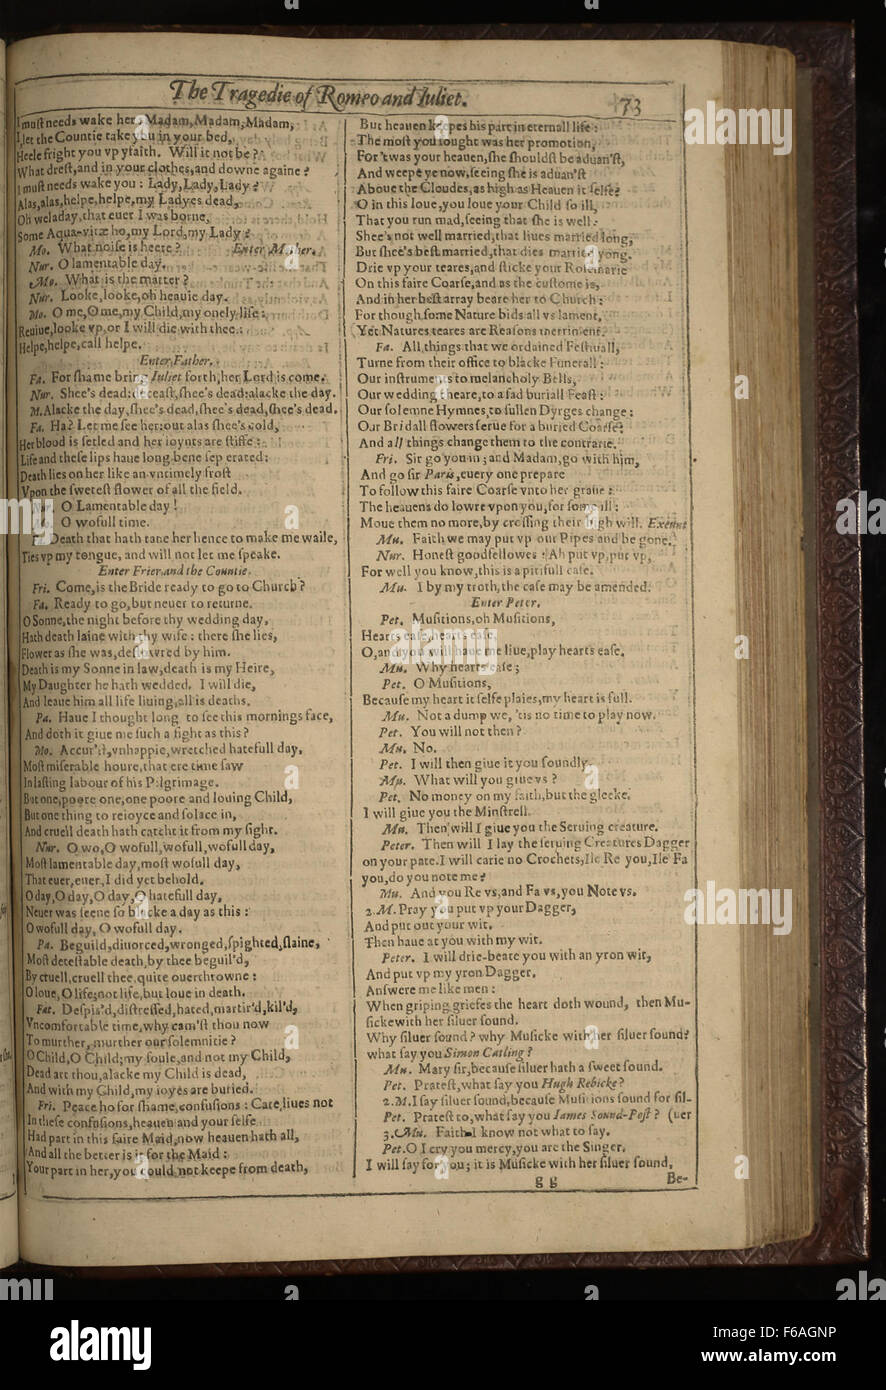 The Tragedie of Romeo and Iuliet.
73
I muſt needs wake her, Madam, Madam, Madam,
I, let the Countie take you in your bed,
Heele fright you vp yfaith. Will it not be?
What dreſt, and in your clothes, and downe againe?
I muſt needs wake you: Lady, Lady, Lady?
Alas, alas, helpe, helpe, my Ladyes dead,
Oh weladay, that euer I was borne,
Some Aqua-vitæ ho, my Lord, my Lady?
Mo. What noiſe is heere? Enter Mother.
Nur. O lamentable day.
Mo. What is the matter?
Nur. Looke, looke, oh heauie day.
Mo. O me, O me, my Child, my onely life:
Reuiue, looke vp, or I will die with thee:
Helpe, helpe, call helpe.
Enter Father.
Fa. For ſhame bring Iuliet forth, her Lord is come.
Nur. Shee's dead: deceaſt, ſhee's dead: alacke the day.
M. Alacke the day, ſhee's dead, ſhee's dead, ſhee's dead.
Fa. Ha? Let me ſee her: out alas ſhee's cold,
Her blood is ſetled and her ioynts are ſtiffe:
Life and theſe lips haue long bene ſeperated:
Death lies on her like an vntimely froſt
Vpon the ſweteſt flower of all the field.
Nur. O Lamentable day!
Mo. O wofull time.
Fa. Death that hath tane her hence to make me waile,
Ties vp my tongue, and will not let me ſpeake.
Enter Frier and the Countie.
Fri. Come, is the Bride ready to go to Church?
Fa. Ready to go, but neuer to returne.
O Sonne, the night before thy wedding day,
Hath death laine with thy wife: there ſhe lies,
Flower as ſhe was, deflowred by him.
Death is my Sonne in law, death is my Heire,
My Daughter he hath wedded. I will die,
And leaue him all life liuing, all is deaths.
Pa. Haue I thought long to ſee this mornings face,
And doth it giue me ſuch a ſight as this?
Mo. Accur'd, vnhappie, wretched hatefull day,
Moſt miſerable houre, that ere time ſaw
In laſting labour of his Pilgrimage.
But one, poore one, one poore and louing Child,
But one thing to reioyce and ſolace in,
And cruell death hath catcht it from my ſight.
Nur. O wo, O wofull, wofull, wofull day,
Moſt lamentable day, moſt wofull day,
That euer, euer, I did yet behold.
O day, O day, O day, O hatefull day,
Neuer was ſeene ſo blacke a day as this:
O wofull day, O wofull day.
Pa. Beguild, diuorced, wronged, ſpighted, ſlaine,
Moſt deteſtable death, by thee beguil'd,
By cruell, cruell thee, quite ouerthrowne:
O loue, O life; not life, but loue in death.
Fat. Deſpis'd, diſtreſſed, hated, martir'd, kil'd,
Vncomfortable time, why cam'ſt thou now
To murther, murther our ſolemnitie?
O Child, O Child; my ſoule, and not my Child,
Dead art thou, alacke my Child is dead,
And with my Child, my ioyes are buried.
Fri. Peace ho for ſhame, confuſions: Care, liues not
In theſe confuſions, heauen and your ſelfe
Had part in this faire Maid, now heauen hath all,
And all the better is it for the Maid:
Your part in her, you could not keepe from death,
But heauen keepes his part in eternall life:
The moſt you ſought was her promotion,
For 'twas your heauen, ſhe ſhouldſt be aduan'ſt,
And weepe ye now, ſeeing ſhe is aduan'ſt
Aboue the Cloudes, as high as Heauen it ſelfe?
O in this loue, you loue your Child ſo ill,
That you run mad, ſeeing that ſhe is well:
Shee's not well married, that liues married long,
But ſhee's beſt married, that dies married yong.
Drie vp your teares, and ſticke your Roſemarie
On this faire Coarſe, and as the cuſtome is,
And in her beſt array beare her to Church:
For though ſome Nature bids all vs lament,
Yet Natures teares are Reaſons merriment.
Fa. All things that we ordained Feſtiuall,
Turne from their office to blacke Funerall:
Our inſtruments to melancholy Bells,
Our wedding cheare, to a ſad buriall Feaſt:
Our ſolemne Hymnes, to ſullen Dyrges change:
Our Bridall flowers ſerue for a buried Coarſe:
And all things change them to the contrarie.
Fri. Sir go you in; and Madam, go with him,
And go ſir Paris, euery one prepare
To follow this faire Coarſe vnto her graue:
The heauens do lowre vpon you, for ſome ill:
Moue them no more, by croſſing their high will. Exeunt
Mu. Faith we may put vp our Pipes and be gone.
Nur. Honeſt goodfellowes: Ah put vp, put vp,
For well you know, this is a pitifull caſe.
Mu. I by my troth, the caſe may be amended.
Enter Peter.
Pet. Muſitions, oh Muſitions,
Hearts eaſe, hearts eaſe,
O, and you will haue me liue, play hearts eaſe.
Mu. Why hearts eaſe;
Pet. O Muſitions,
Becauſe my heart it ſelfe plaies, my heart is full.
Mu. Not a dump we, 'tis no time to play now.
Pet. You will not then?
Mu. No.
Pet. I will then giue it you ſoundly.
Mu. What will you giue vs?
Pet. No money on my faith, but the gleeke.
I will giue you the Minſtrell.
Mu. Then will I giue you the Seruing creature.
Peter. Then will I lay the ſeruing Creatures Dagger
on your pate. I will carie no Crochets, Ile Re you, Ile Fa
you, do you note me?
Mu. And you Re vs, and Fa vs, you Note vs.
2. M. Pray you put vp your Dagger,
And put out your wit.
Then haue at you with my wit.
Peter. I will drie-beate you with an yron wit,
And put vp my yron Dagger.
Anſwere me like men:
When griping griefes the heart doth wound, then Mu-
ſicke with her ſiluer ſound.
Why ſiluer ſound? why Muſicke with her ſiluer ſound?
what ſay you Simon Catling?
Mu. Mary ſir, becauſe ſiluer hath a ſweet ſound.
Pet. Prateſt, what ſay you Hugh Rebicke?
2. M. I ſay ſiluer ſound, becauſe Muſitions ſound for ſil-
Pet. Prateſt to, what ſay you Iames Sound-Poſt? (uer
3. Mu. Faith I know not what to ſay.
Pet. O I cry you mercy, you are the Singer.
I will ſay for you; it is Muſicke with her ſiluer ſound,
g g
Be-
alamy
Image ID: F6AGNP
www.alamy.com